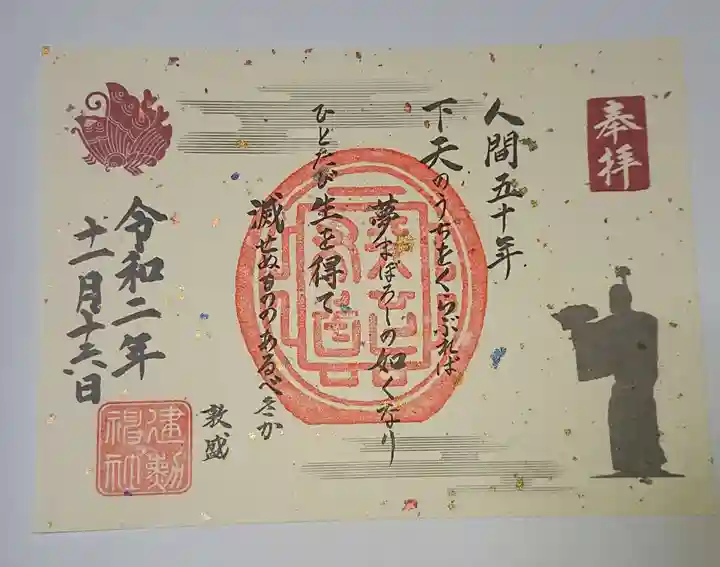 奉拝
人間五十年
下天のうちをくらぶれば
夢まぼろしの如くなり
ひとたび生を得て
滅せぬもののあるべきか
敦盛
令和二年
十一月十六日
建勲
神社